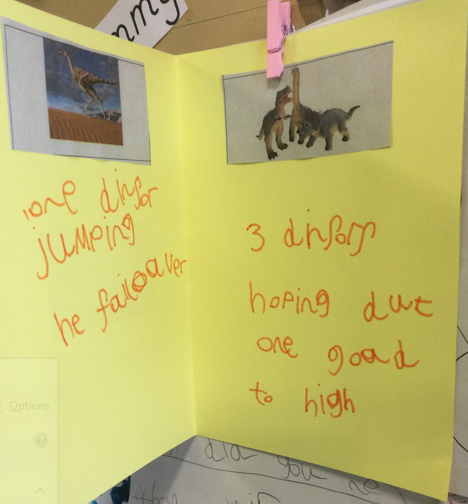 one dinsor
jumping
he
3 dinsors
hoping dut
one goad
to high
Options
did you